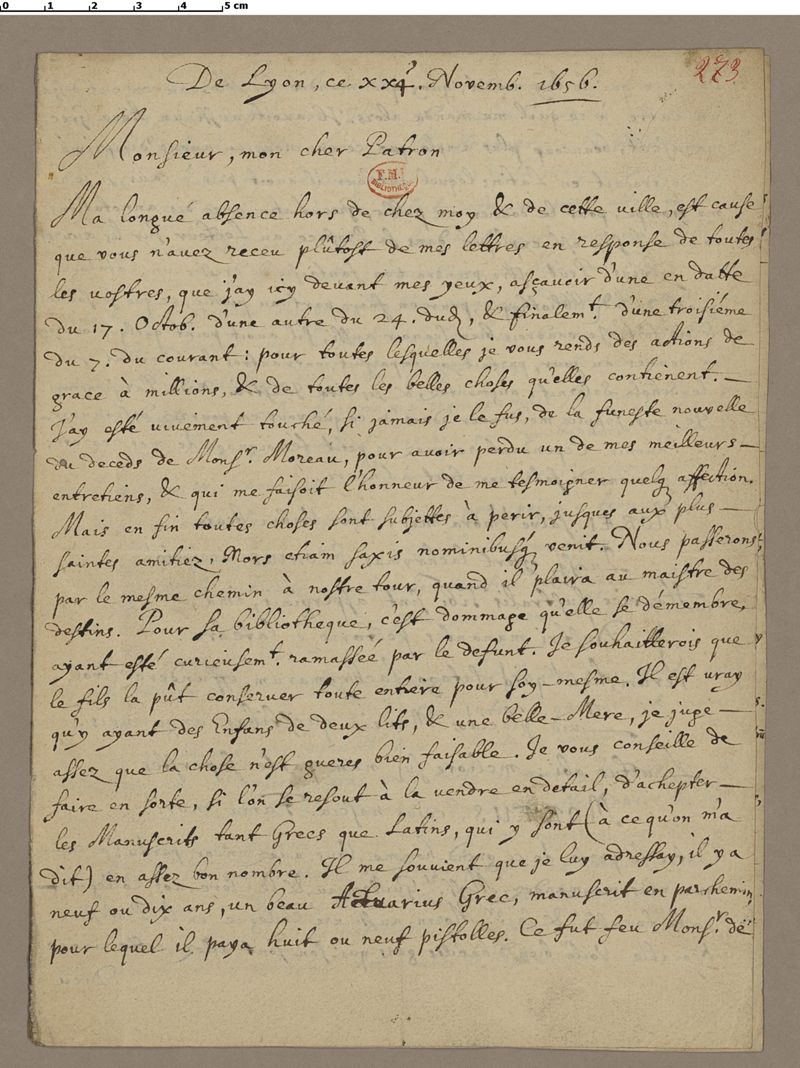 0 1 2 3 4 5 cm
De Lyon, ce xx4e. Novemb. 1656.
273
Monsieur, mon cher Patron
F.M.
BIBLIOTHE
Ma longue absence hors de chez moy & de cette ville, est cause
que vous n'avez receu plûtost de mes lettres en response de toutes
les vostres, que j'ay icy devant mes yeux, asçavoir d'une en datte
du 17. Octob. d'une autre du 24. dud, & finalemt. d'une troisiéme
du 7. du courant: pour toutes lesquelles je vous rends des actions de
grace à millions, & de toutes les belles choses qu'elles contiènent.—
J'ay esté vivement touché, si jamais je le fus, de la funeste nouvelle
du deceds de Monsr. Moreau, pour avoir perdu un de mes meilleurs—
entretiens, & qui me faisoit l'honneur de me tesmoigner quelq affection.
Mais en fin toutes choses sont subjettes à perir, jusques aux plus—
saintes amitiez, Mors etiam saxis nominibusq venit. Nous passerons
par le mesme chemin à nostre tour, quand il plaira au maistre des
destins. Pour sa bibliotheque, c'est dommage qu'elle se démembre,
ayant esté curieusemt. ramassée par le defunt. Je souhaitterois que
le fils la pût conserver toute entiere pour soy-mesme. Il est vray
qu'y ayant des Enfans de deux lits, & une belle-Mere, je juge—
assez que la chose n'est gueres bien faisable. Je vous conseille de
faire en sorte, si l'on se resout à la vendre en detail, d'achepter—
les Manuscrits tant Grecs que Latins, qui y sont (à ce qu'on m'a
dit) en assez bon nombre. Il me souvient que je luy adressay, il y a
neuf ou dix ans, un beau Actuarius Grec, manuscrit en parchemin,
pour lequel il paya huit ou neuf pistolles. Ce fut feu Monsr. de